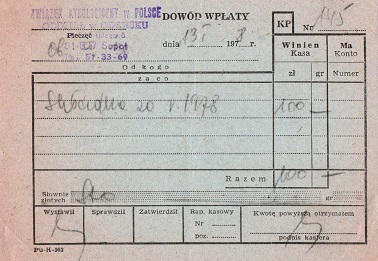 ZWIĄZEK KYNOLOGICZNY w POLSCE
DOWÓD WPŁATY
KP
Nr 145
Pieczęć
Sopot
51-33-69
dnia 13 I 1978
Winien
Kasa
Ma
Konto
Od kogo
za co
zł gr Numer
Składka za r. 1978 100 —
Razem 100 —
Słownie
złotych Sto gr
Wystawił Sprawdził Zatwierdził Rap. kasowy Kwotę powyższą otrzymałem
Nr
poz.
podpis kasjera
Pu-K-103